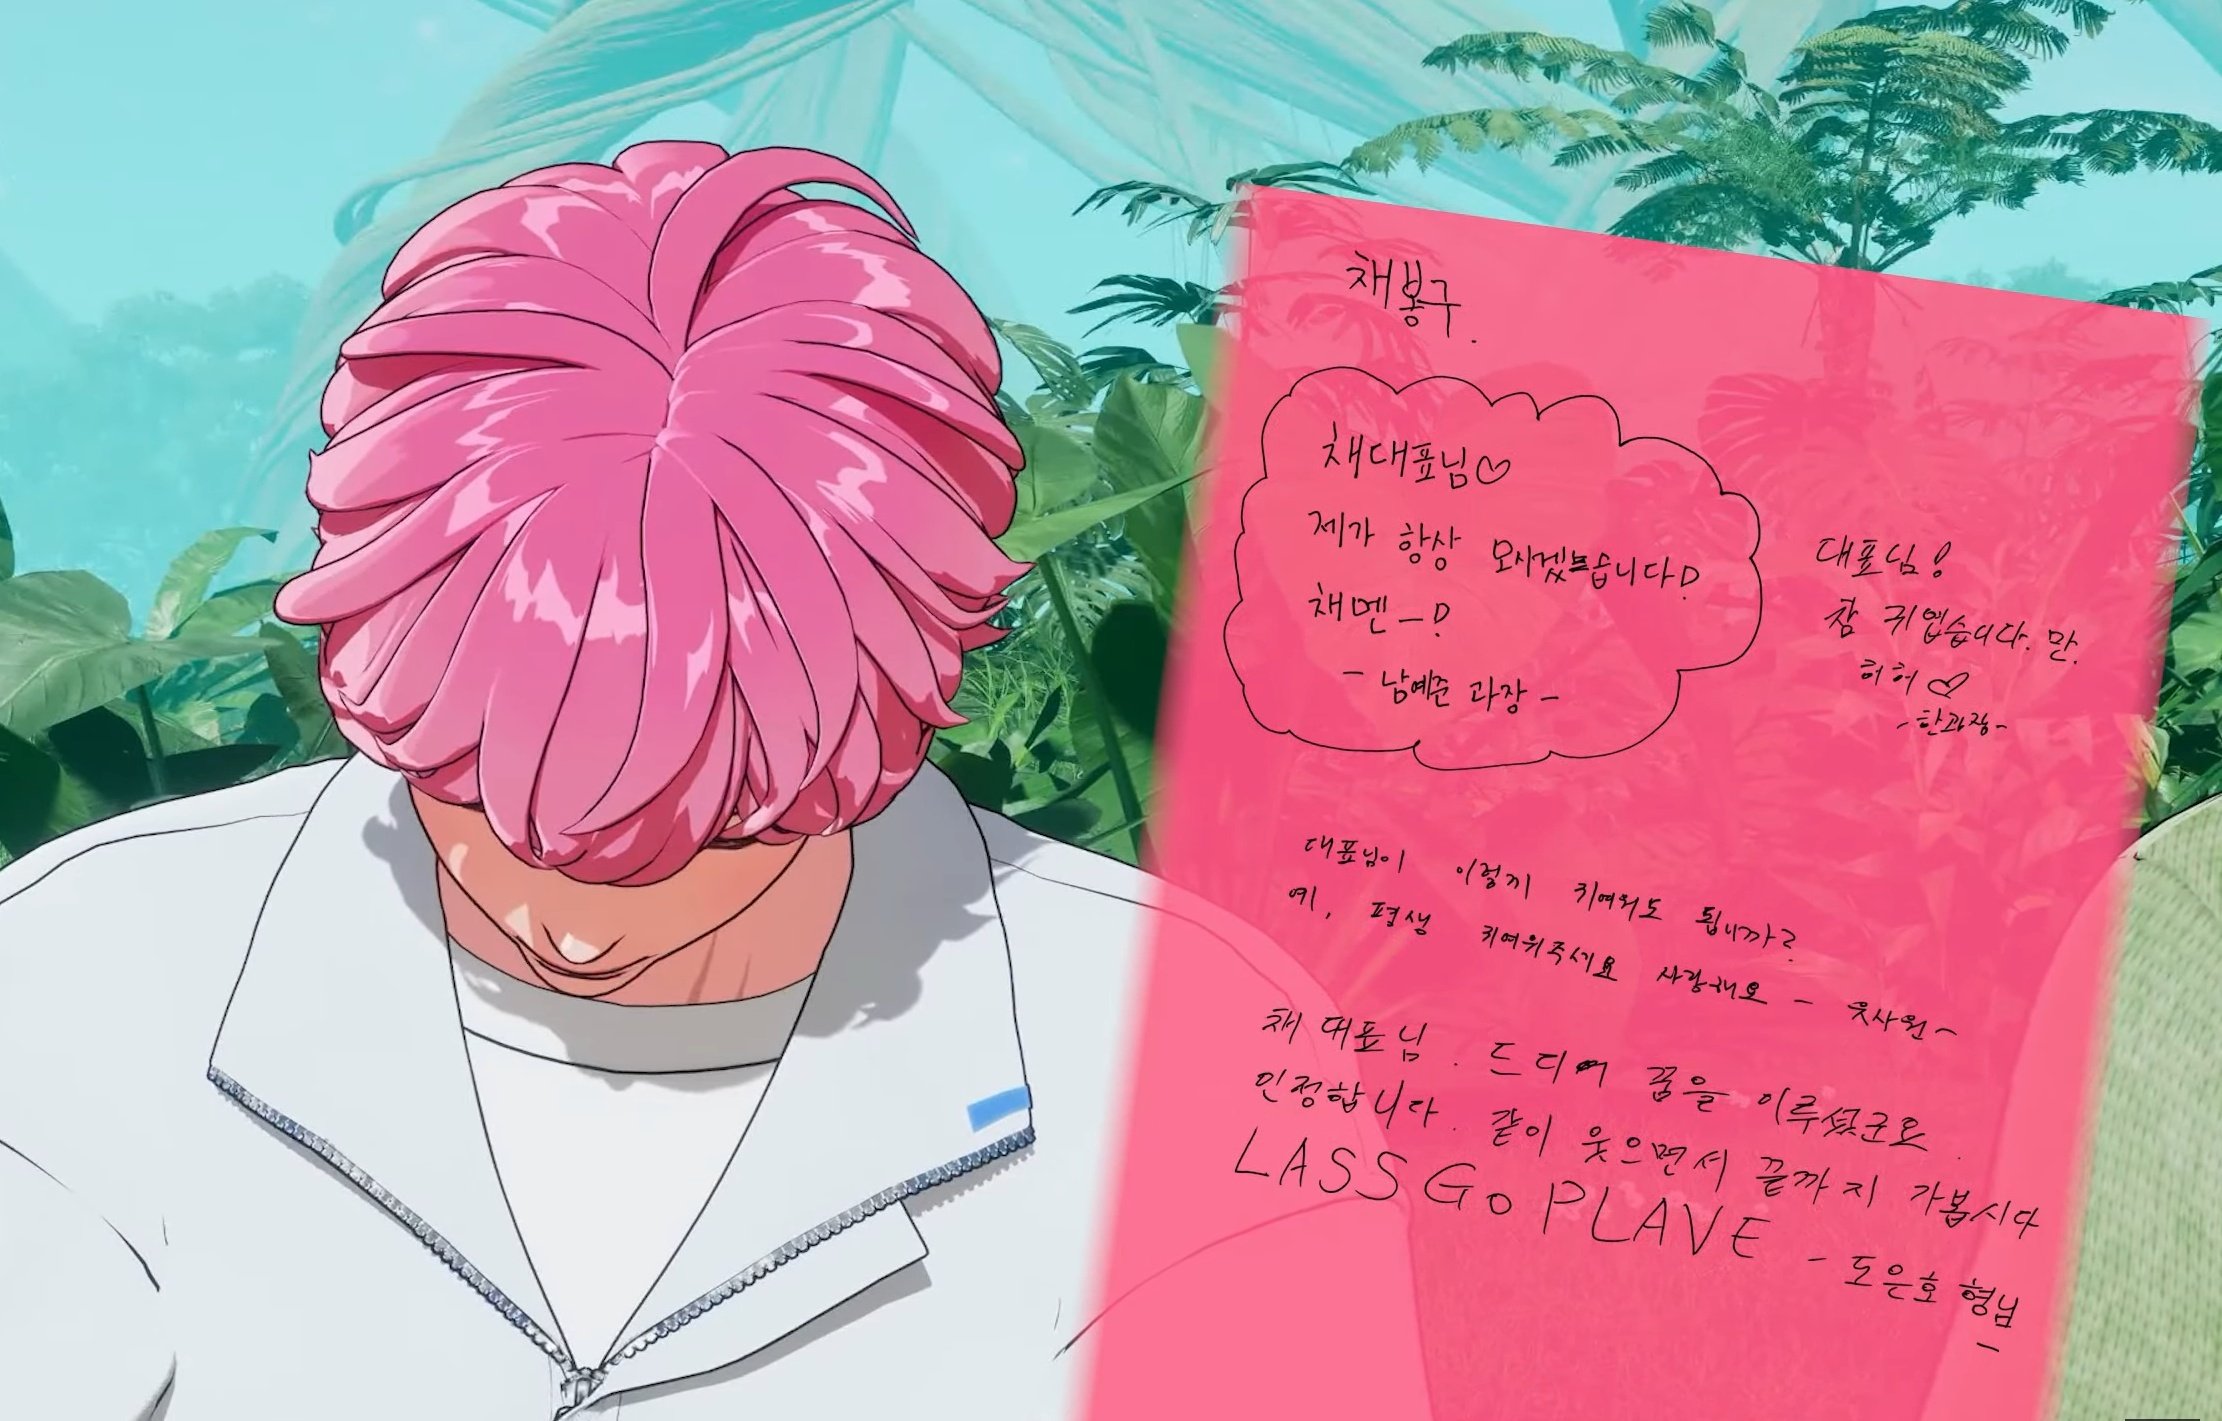 채봉구.
채대표님♡
제가 항상 모시겠습니다!
채멘-!
- 남예준 과장 -
대표님!
참 귀엽습니다. 만.
허허♡
- 한과장 -
대표님이 이렇게 귀여워도 됩니까?
예, 평생 귀여워주세요 사랑해요 - 웃사원 -
채대표님. 드디어 꿈을 이루셨군요.
인정합니다. 같이 웃으면서 끝까지 가봅시다
LASS Go PLAVE - 도은호 형님 -